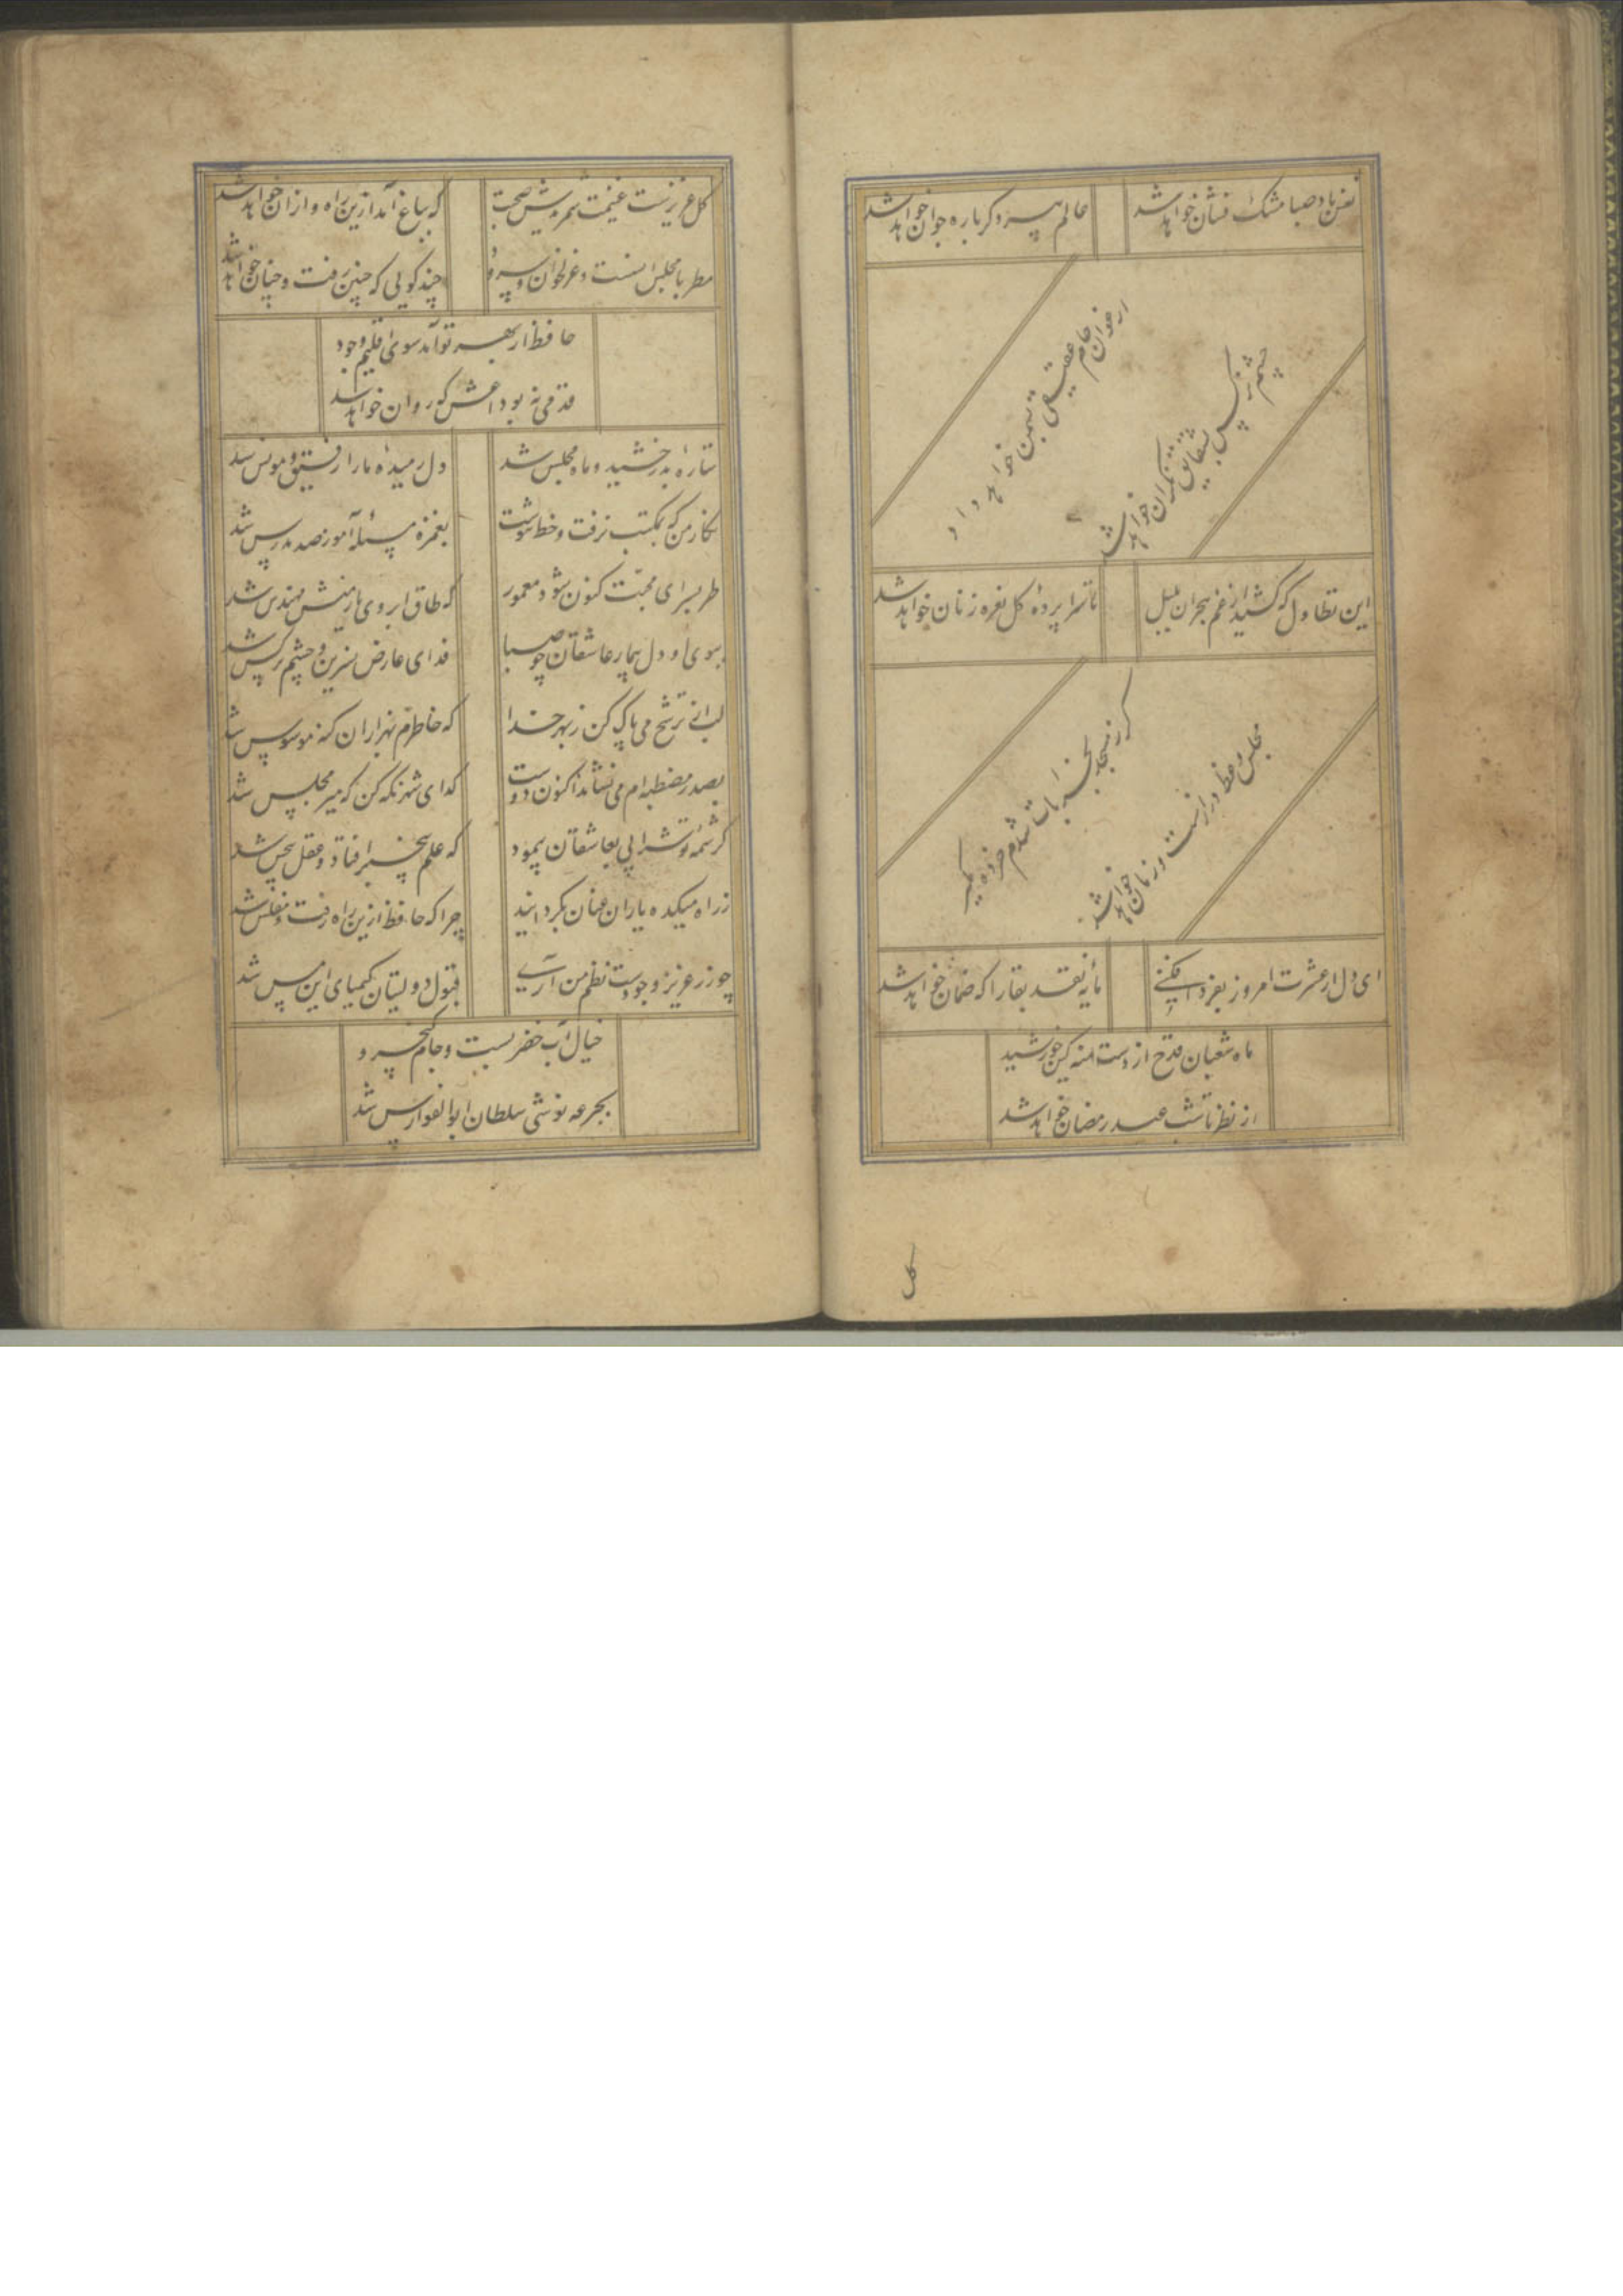 نفس باد صبا مشک فشان خواهد شد
عالم پیر دگرباره جوان خواهد شد
ارغوان جام عقیقی بسمن خواهد داد
چشم نرگس بشقایق نگران خواهد شد
این تطاول که کشید از غم هجران بلبل
تا سراپردهٔ گل نعره زنان خواهد شد
گر ز مسجد بخرابات شدم خرده مگیر
مجلس وعظ درازست و زمان خواهد شد
ای دل ار عشرت امروز بفردا فکنی
مایهٔ نقد بقا را که ضمان خواهد شد
ماه شعبان قدح از دست منه کین خورشید
از نظر تا شب عید رمضان خواهد شد
گل
گل عزیزست غنیمت شمریدش صحبت
که بباغ آمد ازین راه و از آن خواهد شد
مطربا مجلس انسست غزلخوان و سرود
چند گویی که چنین رفت و چنان خواهد شد
حافظ از بهر تو آمد سوی اقلیم وجود
قدمی نه بوداعش که روان خواهد شد
ستارهٔ بدرخشید و ماه مجلس شد
دل رمیدهٔ ما را رفیق و مونس شد
نگار من که بمکتب نرفت و خط ننوشت
بغمزه مسئله آموز صد مدرس شد
طربسرای محبت کنون شود معمور
که طاق ابروی یار منش مهندس شد
ببوی او دل بیمار عاشقان چو صبا
فدای عارض نسرین و چشم نرگس شد
لب از ترشح می پاک کن ز بهر خدا
که خاطرم بهزاران گنه موسوس شد
بصدر مصطبه ام می نشاند اکنون دوست
گدای شهر نگه کن که میر مجلس شد
کرشمهٔ تو شرابی بعاشقان پیمود
که علم بیخبر افتاد و عقل بیحس شد
ز راه میکده یاران عنان بگردانید
چرا که حافظ ازین راه رفت و مفلس شد
چو زر عزیز وجودست نظم من آری
قبول دولتیان کیمیای این مس شد
خیال آب خضر بست و جام کیخسرو
بجرعه نوشی سلطان ابوالفوارس شد